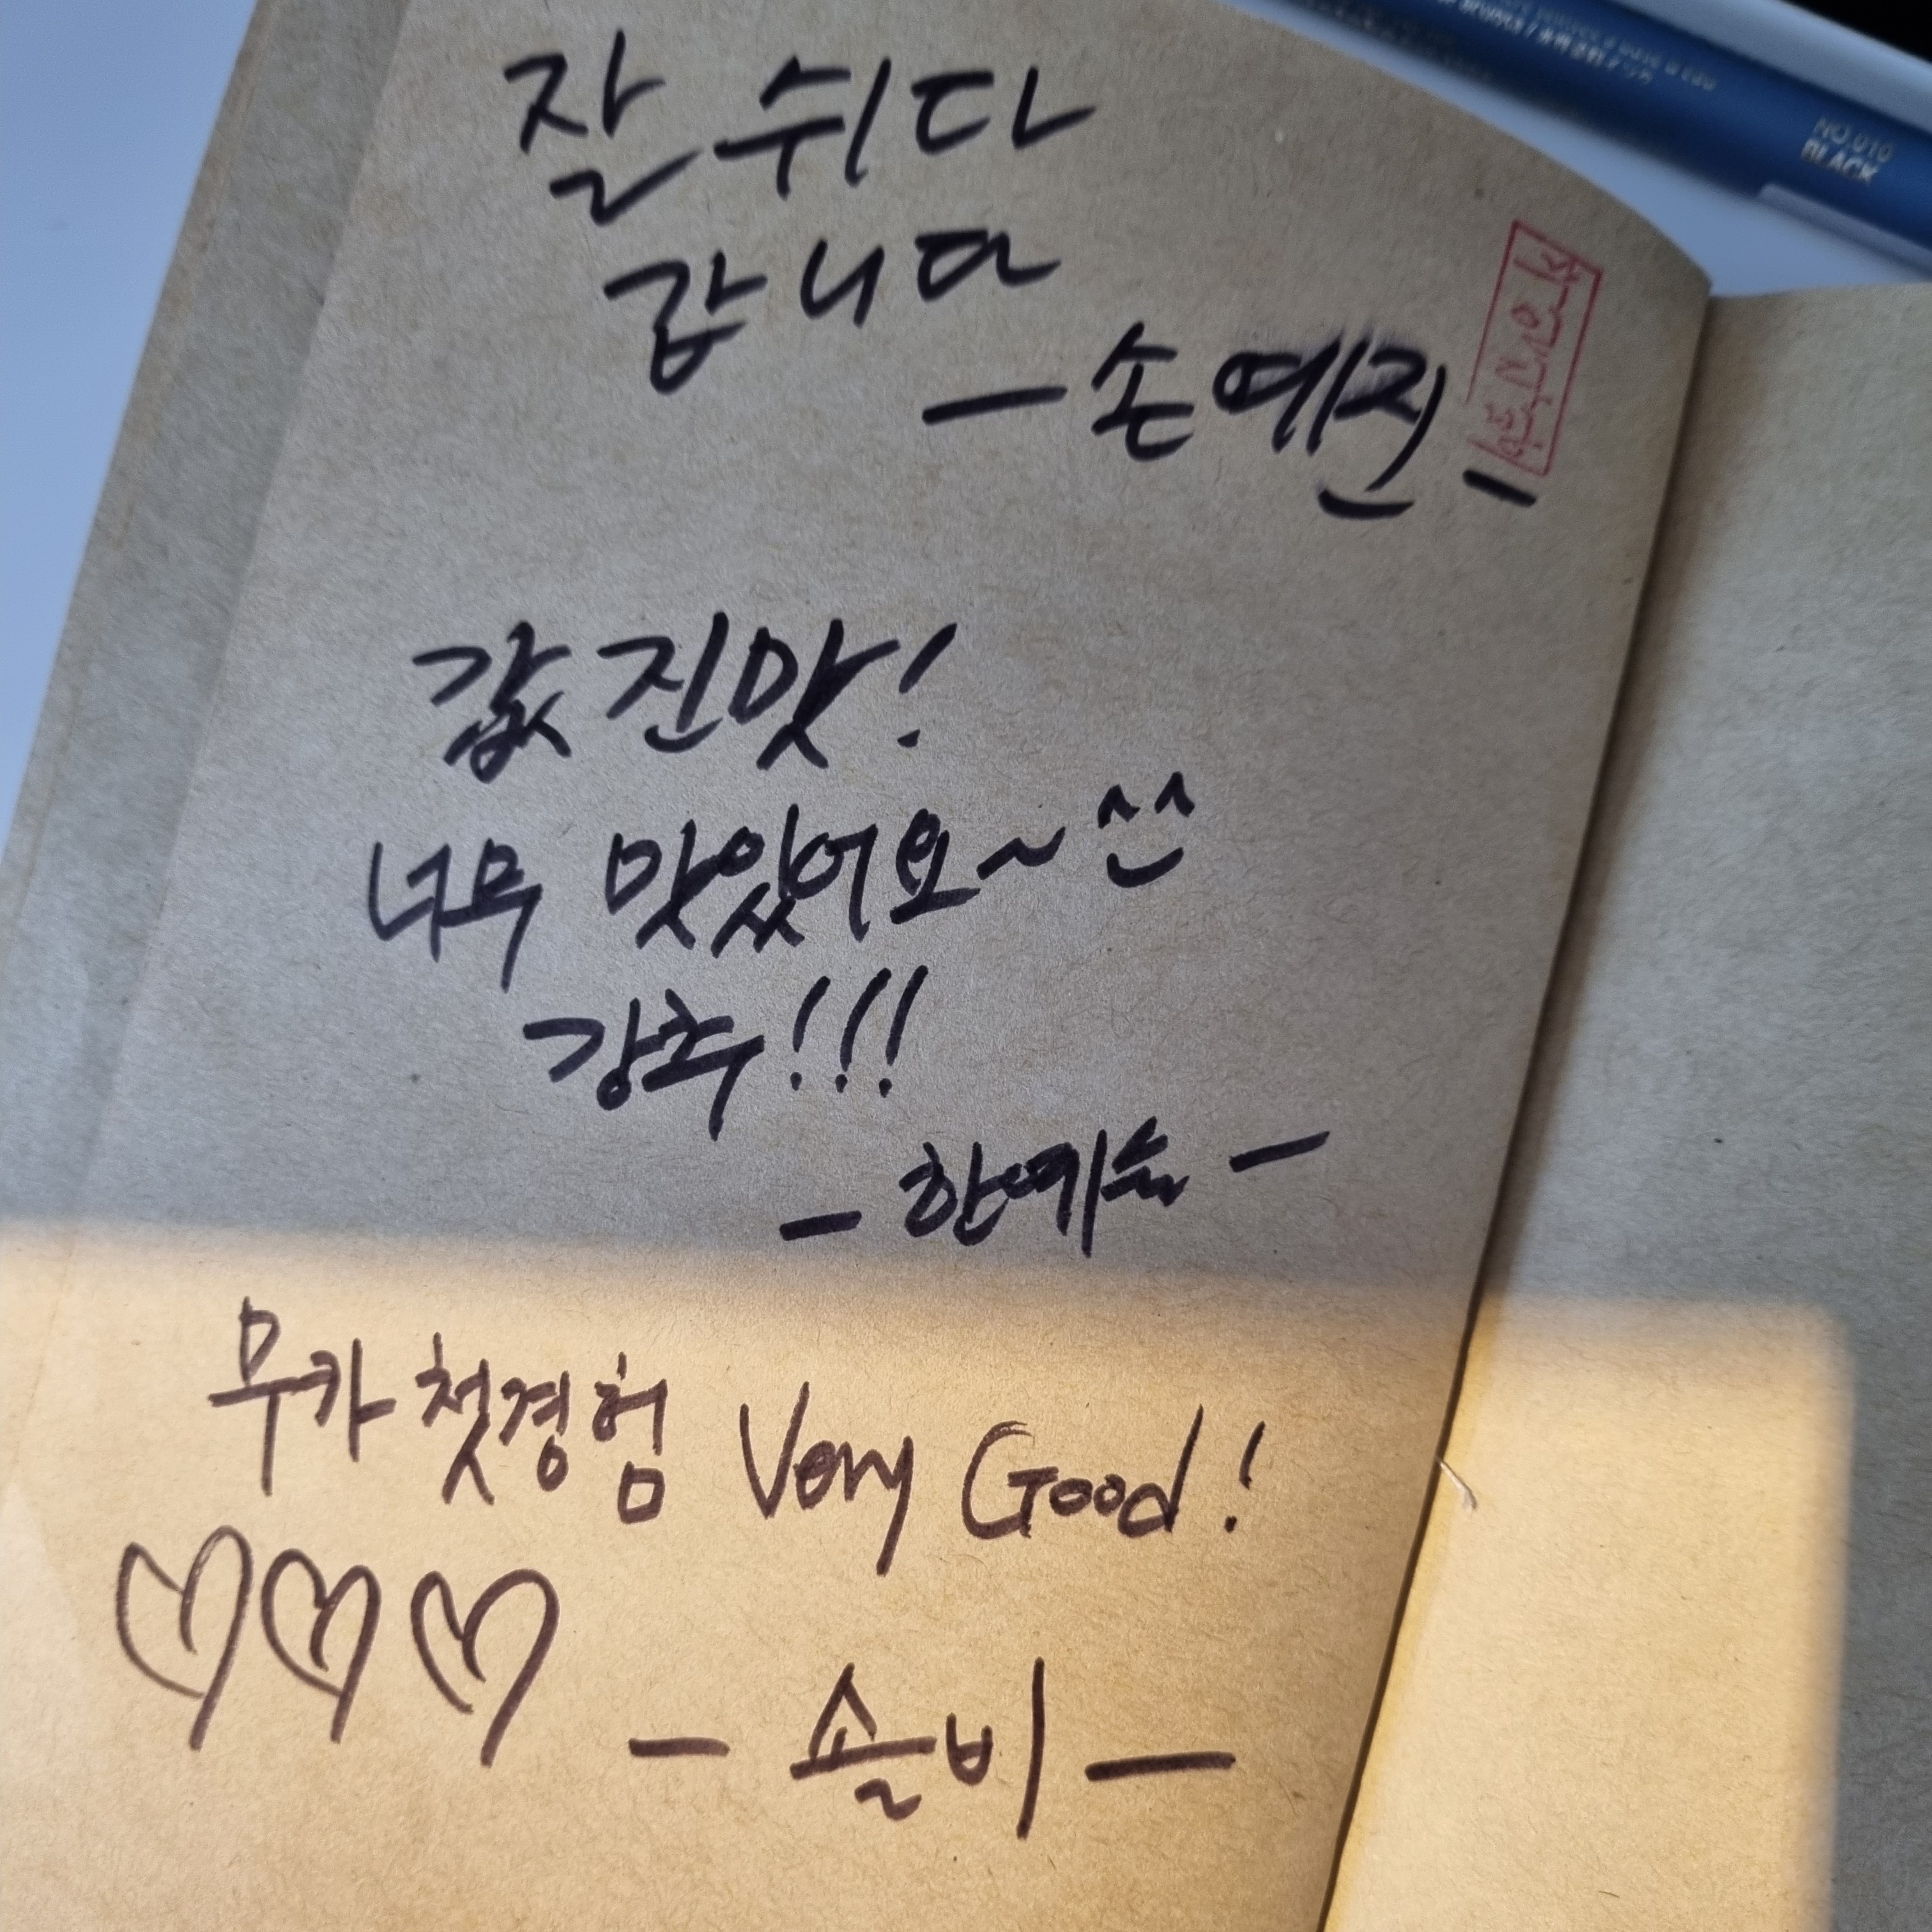 잘 쉬다
갑니다
- 손예진 -
값진맛!
너무 맛있어요~ ^^
강추!!!
- 한예슬 -
무카 첫경험 Very Good!
♡♡♡
- 솔비 -
NO.010
BLACK